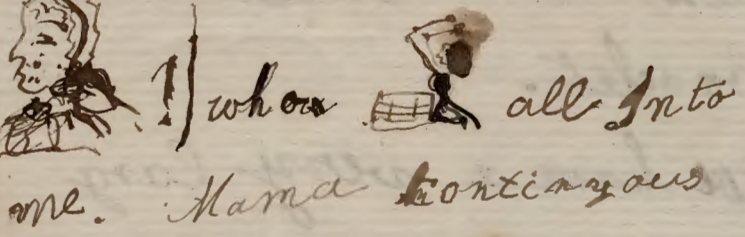 when all Into
me. Mama Continyous